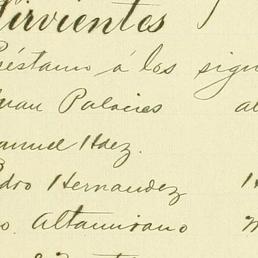 Sirvientes
Préstamo á los sign
Juan Palacios al
Manuel Hdez.
Pedro Hernandez H
o. Altamirano